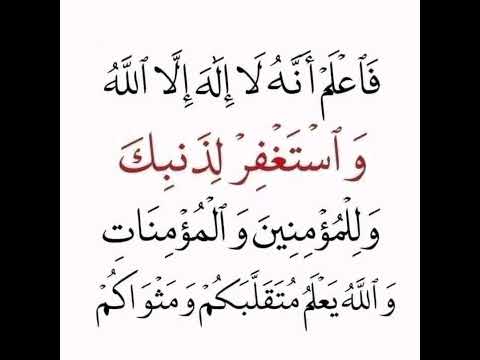 فَٱعْلَمْ أَنَّهُ لَا إِلَٰهَ إِلَّا ٱللَّهُ
وَٱسْتَغْفِرْ لِذَنبِكَ
وَلِلْمُؤْمِنِينَ وَٱلْمُؤْمِنَاتِ
وَٱللَّهُ يَعْلَمُ مُتَقَلَّبَكُمْ وَمَثْوَاكُمْ